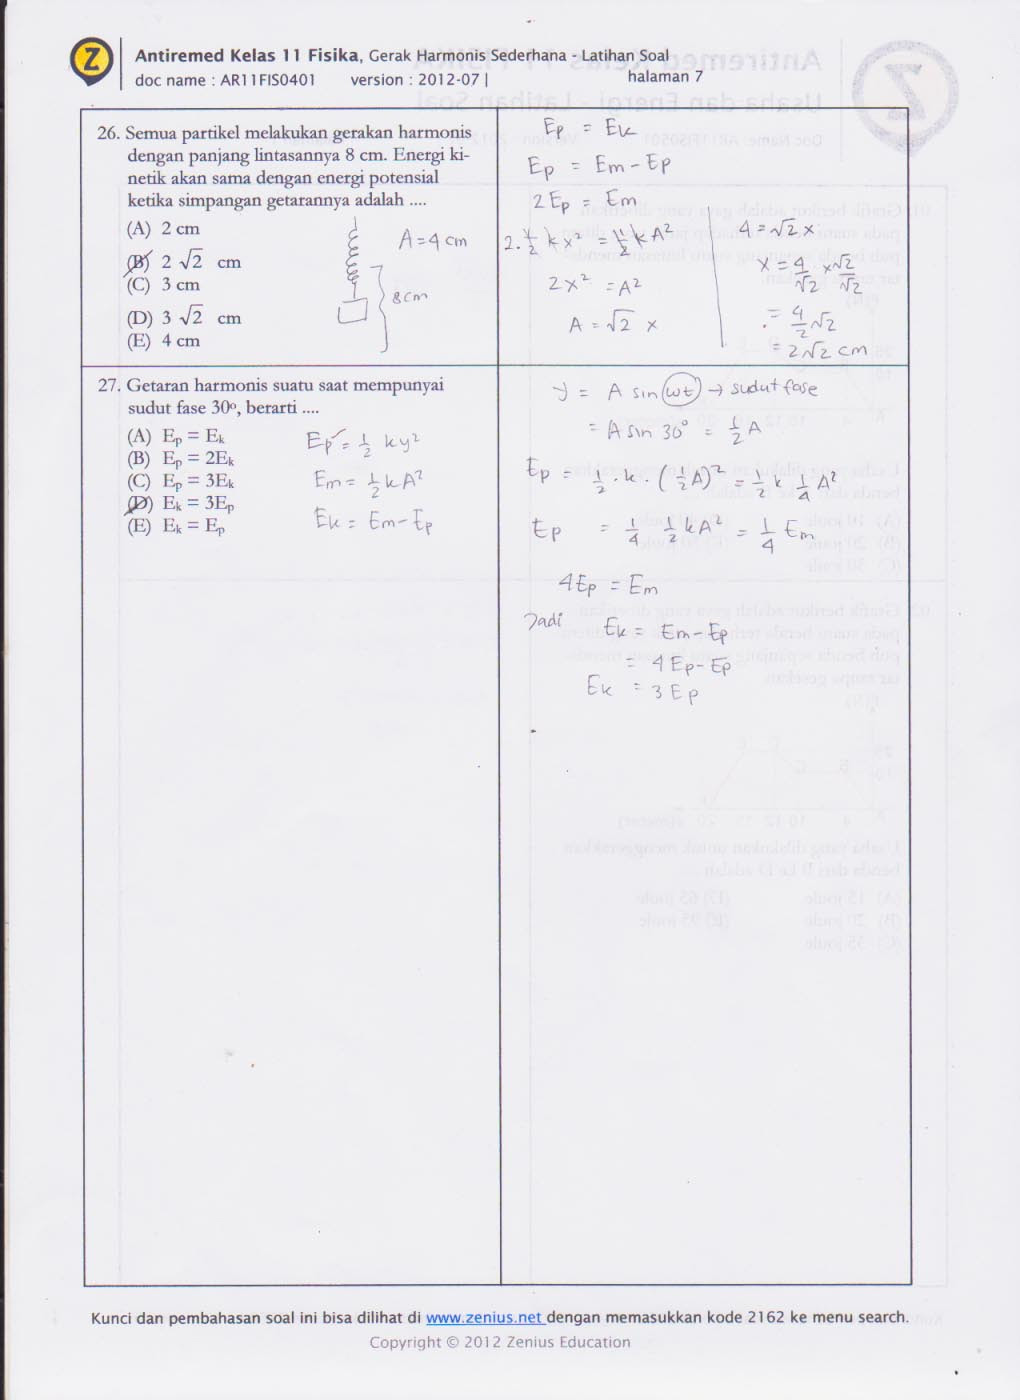 Z
Antiremed Kelas 11 Fisika, Gerak Harmonis Sederhana - Latihan Soal
doc name : AR11FIS0401 version : 2012-07 | halaman 7
26. Semua partikel melakukan gerakan harmonis
dengan panjang lintasannya 8 cm. Energi ki-
netik akan sama dengan energi potensial
ketika simpangan getarannya adalah ....
(A) 2 cm
(B) 2 √2 cm
(C) 3 cm
(D) 3 √2 cm
(E) 4 cm
A = 4 cm
8 cm
Ep = Ek
Ep = Em - Ep
2 Ep = Em
2. 1/2 kx² = 1/2 kA²
2x² = A²
A = √2 x
4 = √2 x
x = 4/√2 x √2/√2
= 4/2 √2
= 2√2 cm
27. Getaran harmonis suatu saat mempunyai
sudut fase 30°, berarti ....
(A) Ep = Ek
(B) Ep = 2Ek
(C) Ep = 3Ek
(D) Ek = 3Ep
(E) Ek = Ep
Ep = 1/2 ky²
Em = 1/2 kA²
Ek = Em - Ep
y = A sin ωt → sudut fase
= A sin 30° = 1/2 A
Ep = 1/2 . k . (1/2 A)² = 1/2 k 1/4 A²
Ep = 1/4 1/2 kA² = 1/4 Em
4Ep = Em
Jadi Ek = Em - Ep
= 4Ep - Ep
Ek = 3Ep
Kunci dan pembahasan soal ini bisa dilihat di www.zenius.net dengan memasukkan kode 2162 ke menu search.
Copyright © 2012 Zenius Education